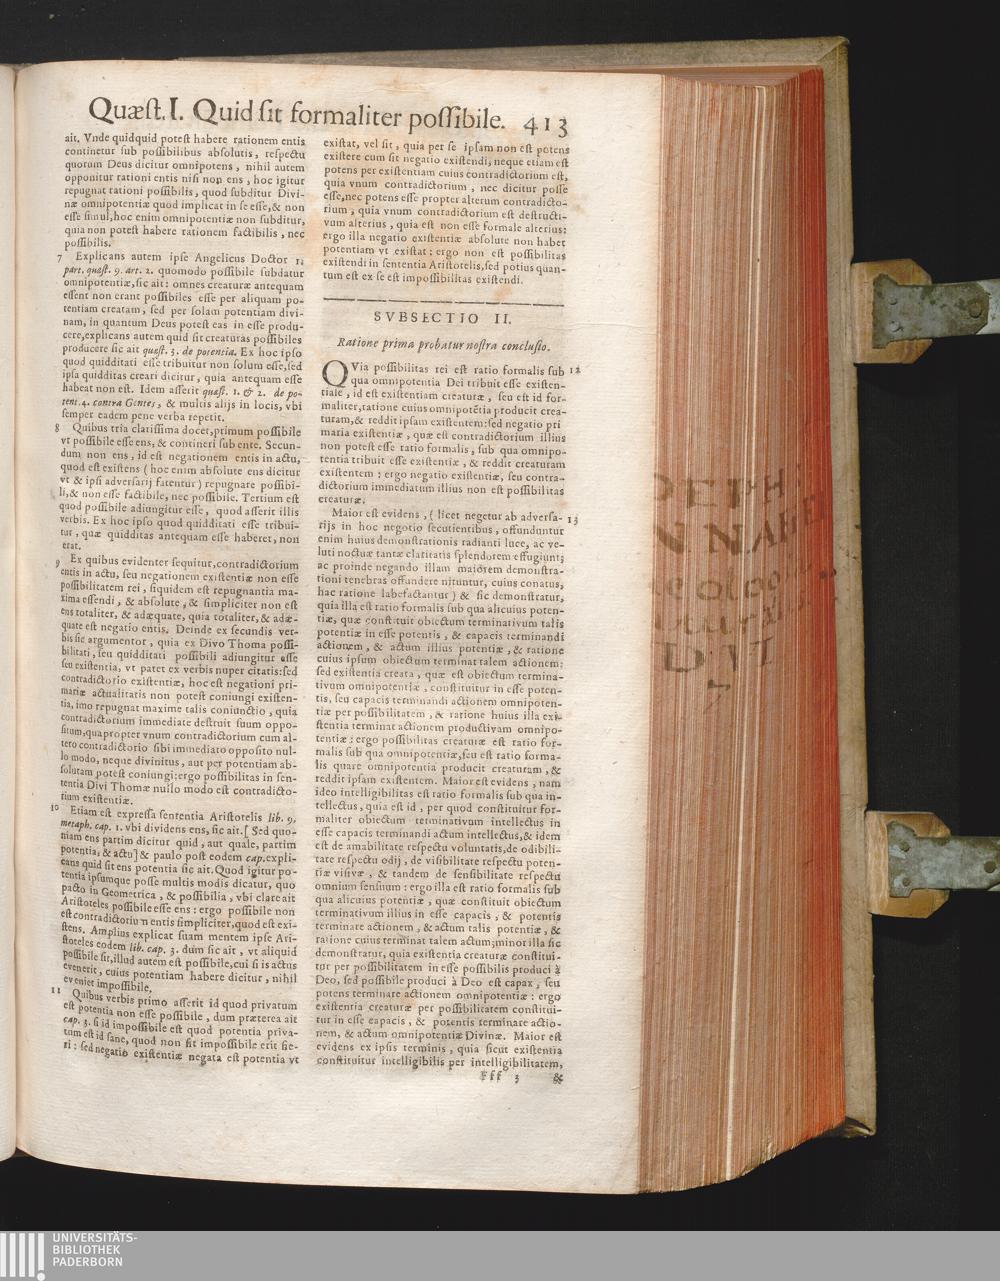 Quæst. I. Quid sit formaliter possibile. 413
ait. Vnde quidquid potest habere rationem entis
continetur sub possibilibus absolutis, respectu
quorum Deus dicitur omnipotens, nihil autem
opponitur rationi entis nisi non ens, hoc igitur
repugnat rationi possibilis, quod subditur Divi-
næ omnipotentiæ quod implicat in se esse, & non
esse simul, hoc enim omnipotentiæ non subditur,
quia non potest habere rationem factibilis, nec
possibilis.
7 Explicans autem ipse Angelicus Doctor 1.
part. quæst. 9. art. 2. quomodo possibile subdatur
omnipotentiæ, sic ait: omnes creaturæ antequam
essent non erant possibiles esse per aliquam po-
tentiam creatam, sed per solam potentiam divi-
nam, in quantum Deus potest eas in esse produ-
cere, explicans autem quid sit creaturas possibiles
producere sic ait quæst. 3. de potentia. Ex hoc ipso
quod quidditati esse tribuitur non solum esse, sed
ipsa quidditas creari dicitur, quia antequam esse
habeat non est. Idem asserit quæst. 1. & 2. de po-
tent. 4. contra Gentes, & multis alijs in locis, vbi
semper eadem pene verba repetit.
8 Quibus tria clarissima docet, primum possibile
vt possibile esse ens, & contineri sub ente. Secun-
dum non ens, id est negationem entis in actu,
quod est existens (hoc enim absolute ens dicitur
vt & ipsi adversarij fatentur) repugnare possibi-
li, & non esse factibile, nec possibile. Tertium est
quod possibile adiungitur esse, quod asserit illis
verbis. Ex hoc ipso quod quidditati esse tribui-
tur, quæ quidditas antequam esse haberet, non
erat.
9 Ex quibus evidenter sequitur, contradictorium
entis in actu, seu negationem existentiæ non esse
possibilitatem rei, siquidem est repugnantia ma-
xima essendi, & absolute, & simpliciter non est
ens totaliter, & adæquate, quia totaliter, & adæ-
quate est negatio entis. Deinde ex secundis ver-
bis sic argumentor, quia ex Divo Thoma possi-
bilitati, seu quidditati possibili adiungitur esse
seu existentia, vt patet ex verbis nuper citatis: sed
contradictorio existentiæ, hoc est negationi pri-
mariæ actualitatis non potest coniungi existen-
tia, imo repugnat maxime talis coniunctio, quia
contradictorium immediate destruit suum oppo-
situm, quapropter vnum contradictorium cum al-
tero contradictorio sibi immediato opposito nul-
lo modo, neque divinitus, aut per potentiam ab-
solutam potest coniungi: ergo possibilitas in sen-
tentia Divi Thomæ nullo modo est contradicto-
rium existentiæ.
10 Etiam est expressa sententia Aristotelis lib. 9.
metaph. cap. 1. vbi dividens ens, sic ait. [Sed quo-
niam ens partim dicitur quid, aut quale, partim
potentia, & actu] & paulo post eodem cap. expli-
cans quid sit ens potentia sic ait. Quod igitur po-
tentia ipsumque posse multis modis dicatur, quo
pacto in Geometrica, & possibilia, vbi clare ait
Aristoteles possibile esse ens: ergo possibile non
est contradictorium entis simpliciter, quod est exi-
stens. Amplius explicat suam mentem ipse Ari-
stoteles eodem lib. cap. 3. dum sic ait, vt aliquid
possibile sit, illud autem est possibile, cui si is actus
evenerit, cuius potentiam habere dicitur, nihil
eveniet impossibile.
11 Quibus verbis primo asserit id quod privatum
est potentia non esse possibile, dum præterea ait
cap. 3. si id impossibile est quod potentia priva-
tum est id sane, quod non sit impossibile erit fie-
ri: sed negatio existentiæ negata est potentia vt
existat, vel sit, quia per se ipsam non est potens
existere cum sit negatio existendi, neque etiam est
potens per existentiam cuius contradictorium est,
quia vnum contradictorium, nec dicitur posse
esse, nec potens esse propter alterum contradicto-
rium, quia vnum contradictorium est destructi-
vum alterius, quia est non esse formale alterius:
ergo illa negatio existentiæ absolute non habet
potentiam vt existat: ergo non est possibilitas
existendi in sententia Aristotelis, sed potius quan-
tum est ex se est impossibilitas existendi.
SVBSECTIO II.
Ratione prima probatur nostra conclusio.
QVia possibilitas rei est ratio formalis sub 12
qua omnipotentia Dei tribuit esse existen-
tiale, id est existentiam creaturæ, seu est id for-
maliter, ratione cuius omnipotẽtia producit crea-
turam, & reddit ipsam existentem: sed negatio pri
maria existentiæ, quæ est contradictorium illius
non potest esse ratio formalis, sub qua omnipo-
tentia tribuit esse existentiæ, & reddit creaturam
existentem: ergo negatio existentiæ, seu contra-
dictorium immediatum illius non est possibilitas
creaturæ.
Maior est evidens, (licet negetur ab adversa- 13
rijs in hoc negotio secutientibus, offunduntur
enim huius demonstrationis radianti luce, ac ve-
luti noctuæ tantæ claritatis splendorem effugiunt;
ac proinde negando illam maiorem demonstra-
tioni tenebras offundere nituntur, cuius conatus,
hac ratione labefactantur) & sic demonstratur,
quia illa est ratio formalis sub qua alicuius poten-
tiæ, quæ constituit obiectum terminativum talis
potentiæ in esse potentis, & capacis terminandi
actionem, & actum illius potentiæ, & ratione
cuius ipsum obiectum terminat talem actionem:
sed existentia creata, quæ est obiectum termina-
tivum omnipotentiæ, constituitur in esse poten-
tis, seu capacis terminandi actionem omnipoten-
tiæ per possibilitatem, & ratione huius illa exi-
stentia terminat actionem productivam omnipo-
tentiæ: ergo possibilitas creaturæ est ratio for-
malis sub qua omnipotentiæ, seu est ratio forma-
lis quare omnipotentia producit creaturam, &
reddit ipsam existentem. Maior est evidens, nam
ideo intelligibilitas est ratio formalis sub qua in-
tellectus, quia est id, per quod constituitur for-
maliter obiectum terminativum intellectus in
esse capacis terminandi actum intellectus, & idem
est de amabilitate respectu voluntatis, de odibili-
tate respectu odij, de visibilitate respectu poten-
tiæ visivæ, & tandem de sensibilitate respectu
omnium sensuum: ergo illa est ratio formalis sub
qua alicuius potentiæ, quæ constituit obiectum
terminativum illius in esse capacis, & potentis
terminare actionem, & actum talis potentiæ, &
ratione cuius terminat talem actum; minor illa sic
demonstratur, quia existentia creaturæ constitui-
tur per possibilitatem in esse possibilis produci à
Deo, sed possibile produci à Deo est capax, seu
potens terminare actionem omnipotentiæ: ergo
existentia creaturæ per possibilitatem constitui-
tur in esse capacis, & potentis terminare actio-
nem, & actum omnipotentiæ Divinæ. Maior est
evidens ex ipsis terminis, quia sicut existentia
constituitur intelligibilis per intelligibilitatem,
Fff 3 &
UNIVERSITÄTS-
BIBLIOTHEK
PADERBORN